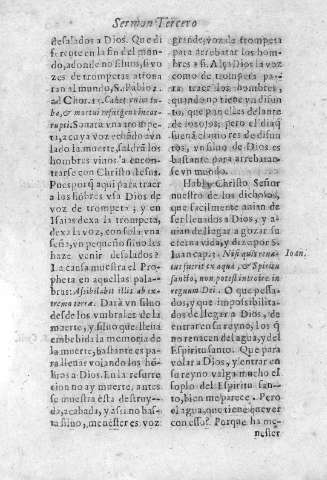 Sermon Tercero
desalados a Dios. Que di
ferente en la fin del mun
do, adonde no siluos, si vo
zes de trompetas atrona
ran al mundo, S. Pablo 2.
ad Chor. 15. Canet enim tu-
ba, & mortui resurgent incor-
rupti. Sonarà vna trompe-
ta, a cuya voz echãdo a vn
lado la muerte, saldrã los
hombres viuos a encon-
trarse con Christo Iesus.
Pues porq̃ aqui para traer
a los hõbres vsa Dios de
voz de trompeta; y en
Isaias dexa la trompeta,
dexa la voz, con sola vna
seña, vn pequeño siluo les
haze venir desalados?
La causa muestra el Pro-
pheta en aquellas pala-
bras: Assibilabit illis ab ex-
tremo terræ. Darà vn siluo
desde los vmbrales de la
muerte, y siluo que lleua
embebida la memoria de
la muerte, bastante es pa-
ra lleuar volando los hõ-
bres a Dios. En la resurre
cion no ay muerte, antes
se muestra esta destruy-
da, acabada, y assi no bas-
ta siluo, menester es voz
grande; voz de trompeta
para arrebatar los hom-
bres a si. A essa Dios la voz
como de trompeta pa-
ra traer los hombres,
quando no tiene ya difun
to, que ponelles delante
de los ojos; pero el dia q̃
suena el nombre de difun
tos, vn siluo de Dios es
bastante para arrebatar-
se vn mundo.
Habla Christo Señor
nuestro de los dichosos,
que facilmente auian de
ser lleuados a Dios, y a-
uian de llegar a gozar su
eterna vida, y dize por S.
Iuan cap. 3. Nisi quis rena-
tus fuerit ex aqua, & Spiritu
sancto, non potest introire in
regnum Dei. O que pesa-
dos, y que impossibilita-
dos de llegar a Dios, de
entrar en su reyno, los q̃
no renacen del agua, y del
Espiritu santo. Que para
volar a Dios, y entrar en
su reyno valga mucho el
soplo del Espiritu san-
to, bien me parece. Pero
el agua, que tiene que ver
con esso? Porque ha me-
nester
Ioan.